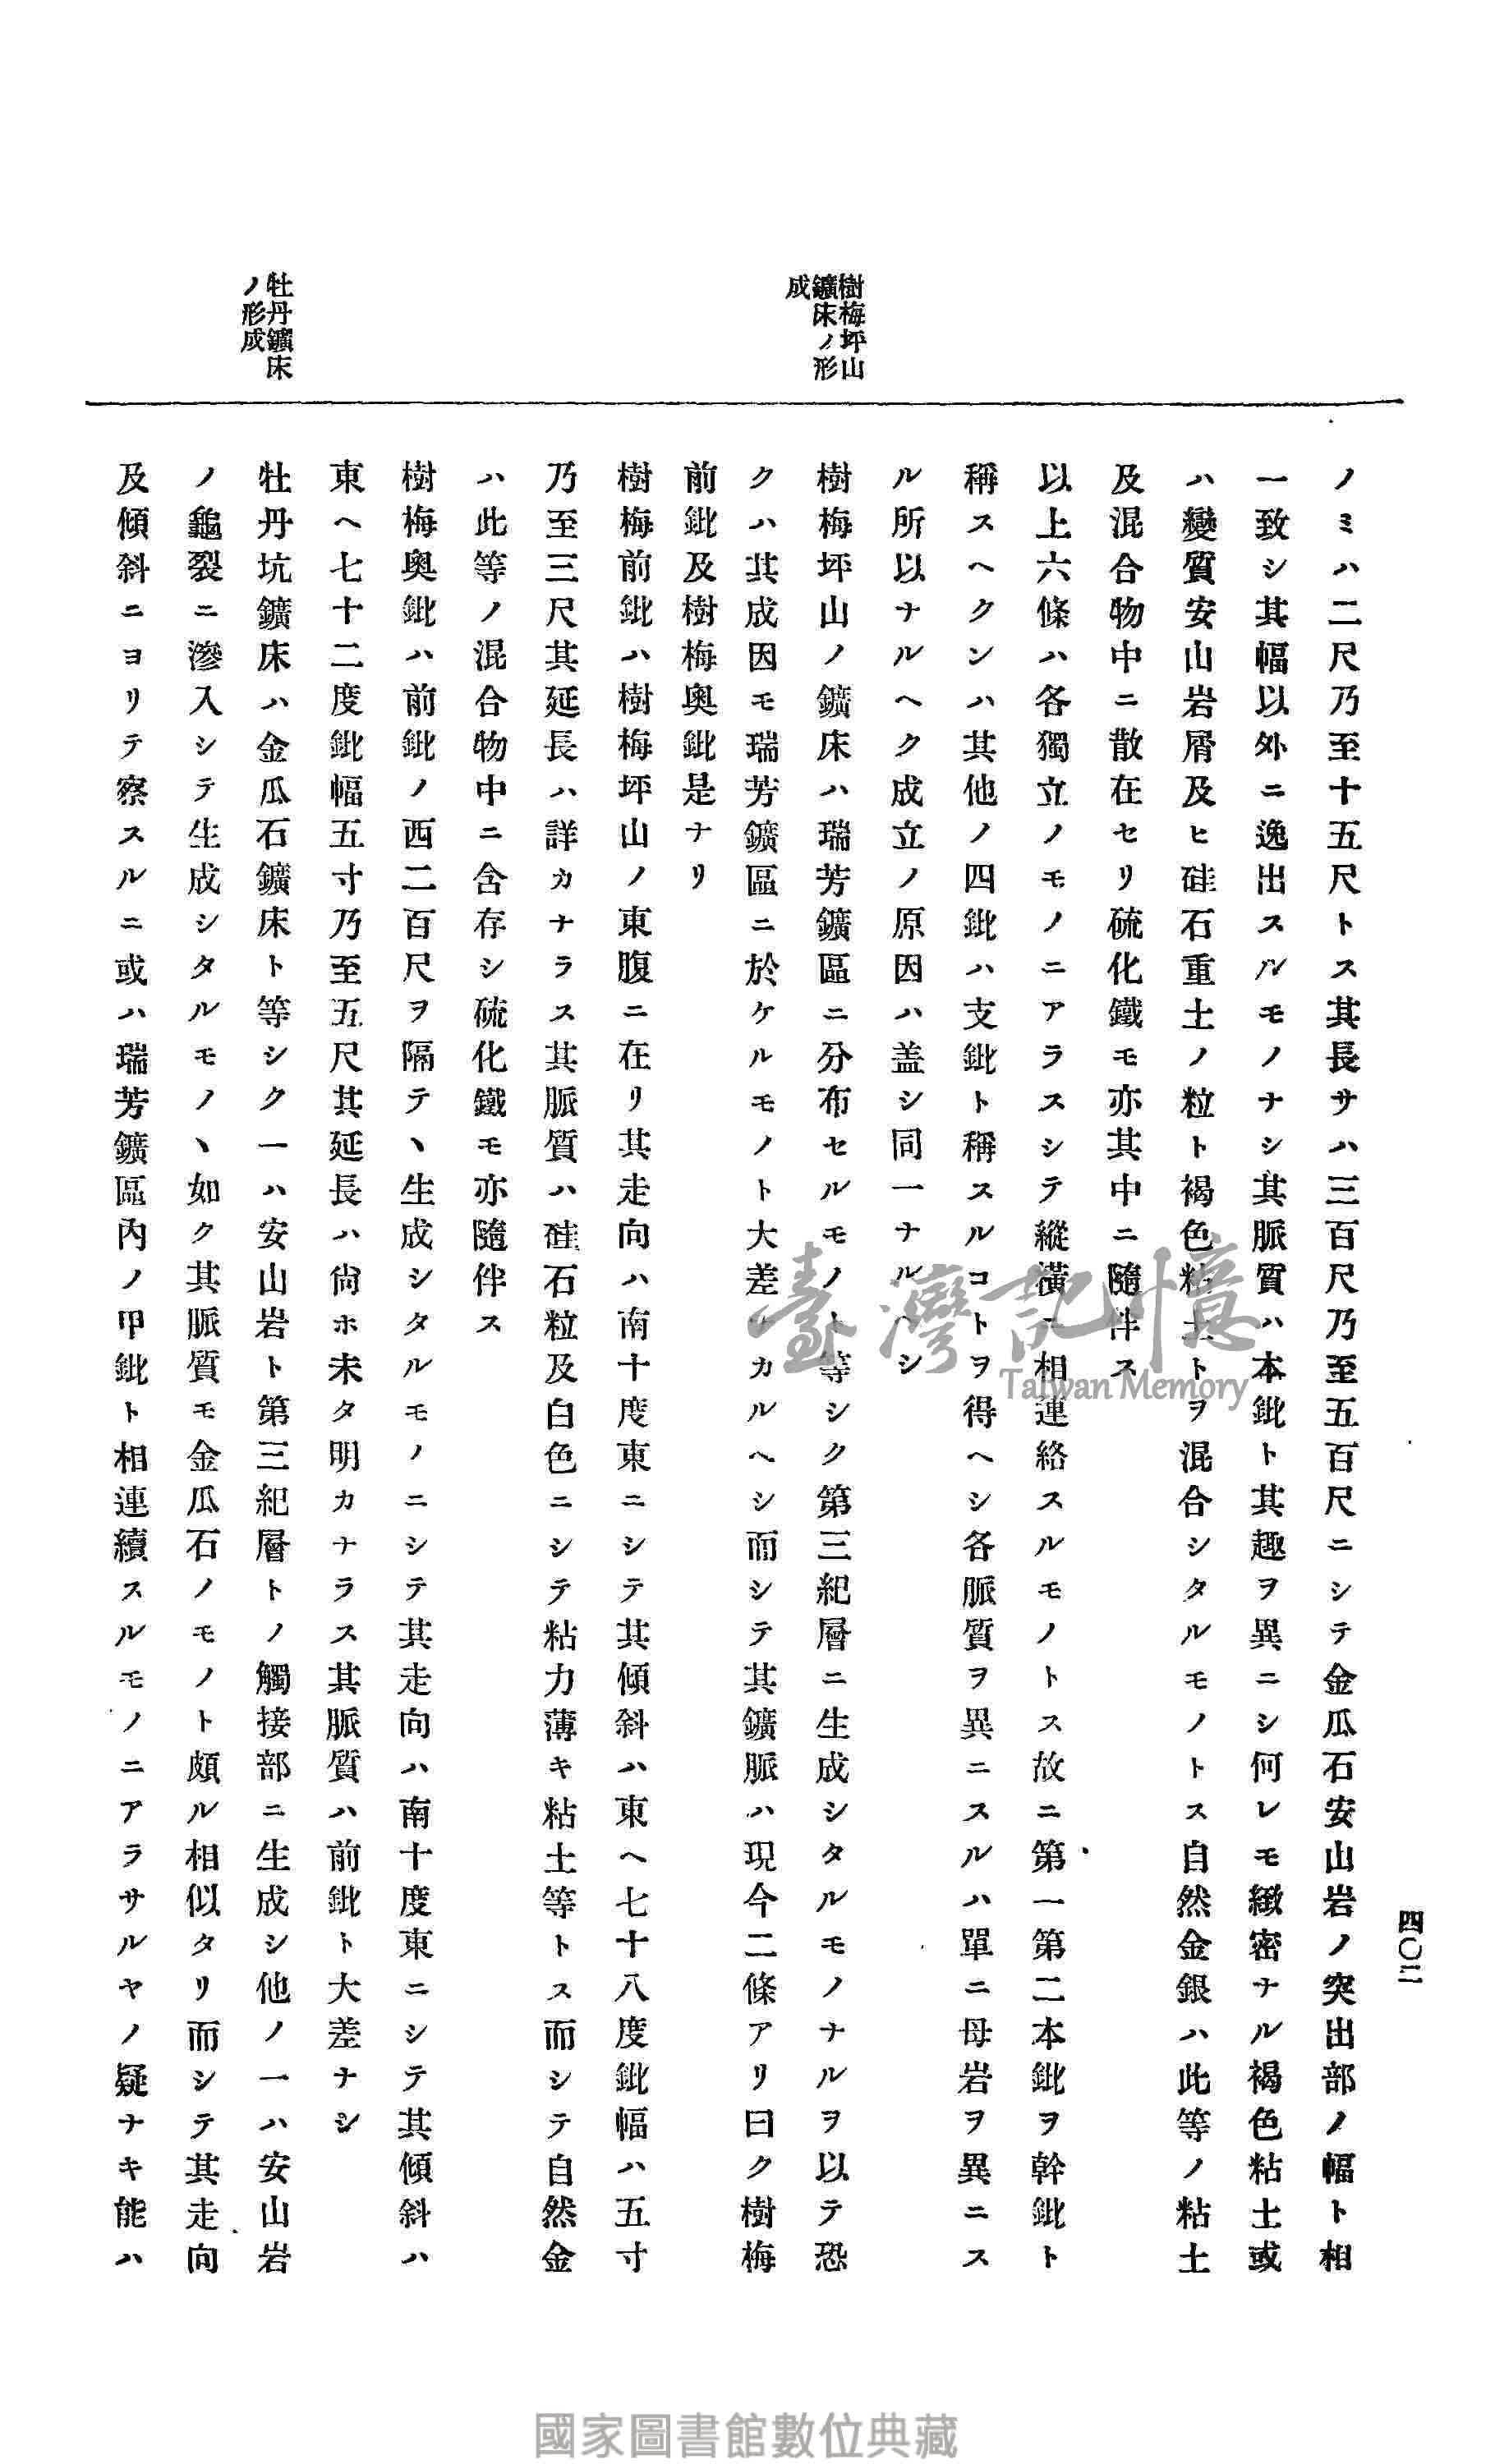 四〇二
ノミハ二尺乃至十五尺トス其長サハ三百尺乃至五百尺ニシテ金瓜石安山岩ノ突出部ノ幅ト相
一致シ其幅以外ニ逸出スルモノナシ其脈質ハ本𨥉ト其趣ヲ異ニシ何レモ緻密ナル褐色粘土或
ハ變質安山岩屑及ヒ硅石重土ノ粒ト褐色粘土トヲ混合シタルモノトス自然金銀ハ此等ノ粘土
及混合物中ニ散在セリ硫化鐵モ亦其中ニ隨伴ス
以上六條ハ各獨立ノモノニアラスシテ縱橫ニ相連絡スルモノトス故ニ第一第二本𨥉ヲ幹𨥉ト
稱スヘクンハ其他ノ四𨥉ハ支𨥉ト稱スルコトヲ得ヘシ各脈質ヲ異ニスルハ單ニ母岩ヲ異ニス
ル所以ナルヘク成立ノ原因ハ盖シ同一ナルヘシ
樹梅坪山鑛床ノ形成
樹梅坪山ノ鑛床ハ瑞芳鑛區ニ分布セルモノト等シク第三紀層ニ生成シタルモノナルヲ以テ恐
クハ其成因モ瑞芳鑛區ニ於ケルモノト大差ナカルヘシ而シテ其鑛脈ハ現今二條アリ曰ク樹梅
前𨥉及樹梅奧𨥉是ナリ
樹梅前𨥉ハ樹梅坪山ノ東腹ニ在リ其走向ハ南十度東ニシテ其傾斜ハ東ヘ七十八度𨥉幅ハ五寸
乃至三尺其延長ハ詳カナラス其脈質ハ硅石粒及白色ニシテ粘力薄キ粘土等トス而シテ自然金
ハ此等ノ混合物中ニ含存シ硫化鐵モ亦隨伴ス
樹梅奧𨥉ハ前𨥉ノ西二百尺ヲ隔テヽ生成シタルモノニシテ其走向ハ南十度東ニシテ其傾斜ハ
東ヘ七十二度𨥉幅五寸乃至五尺其延長ハ尙ホ未タ明カナラス其脈質ハ前𨥉ト大差ナシ
牡丹鑛床ノ形成
牡丹坑鑛床ハ金瓜石鑛床ト等シク一ハ安山岩ト第三紀層トノ觸接部ニ生成シ他ノ一ハ安山岩
ノ龜裂ニ滲入シテ生成シタルモノヽ如ク其脈質モ金瓜石ノモノト頗ル相似タリ而シテ其走向
及傾斜ニヨリテ察スルニ或ハ瑞芳鑛區內ノ甲𨥉ト相連續スルモノニアラサルヤノ疑ナキ能ハ
臺灣記憶
Taiwan Memory
國家圖書館數位典藏